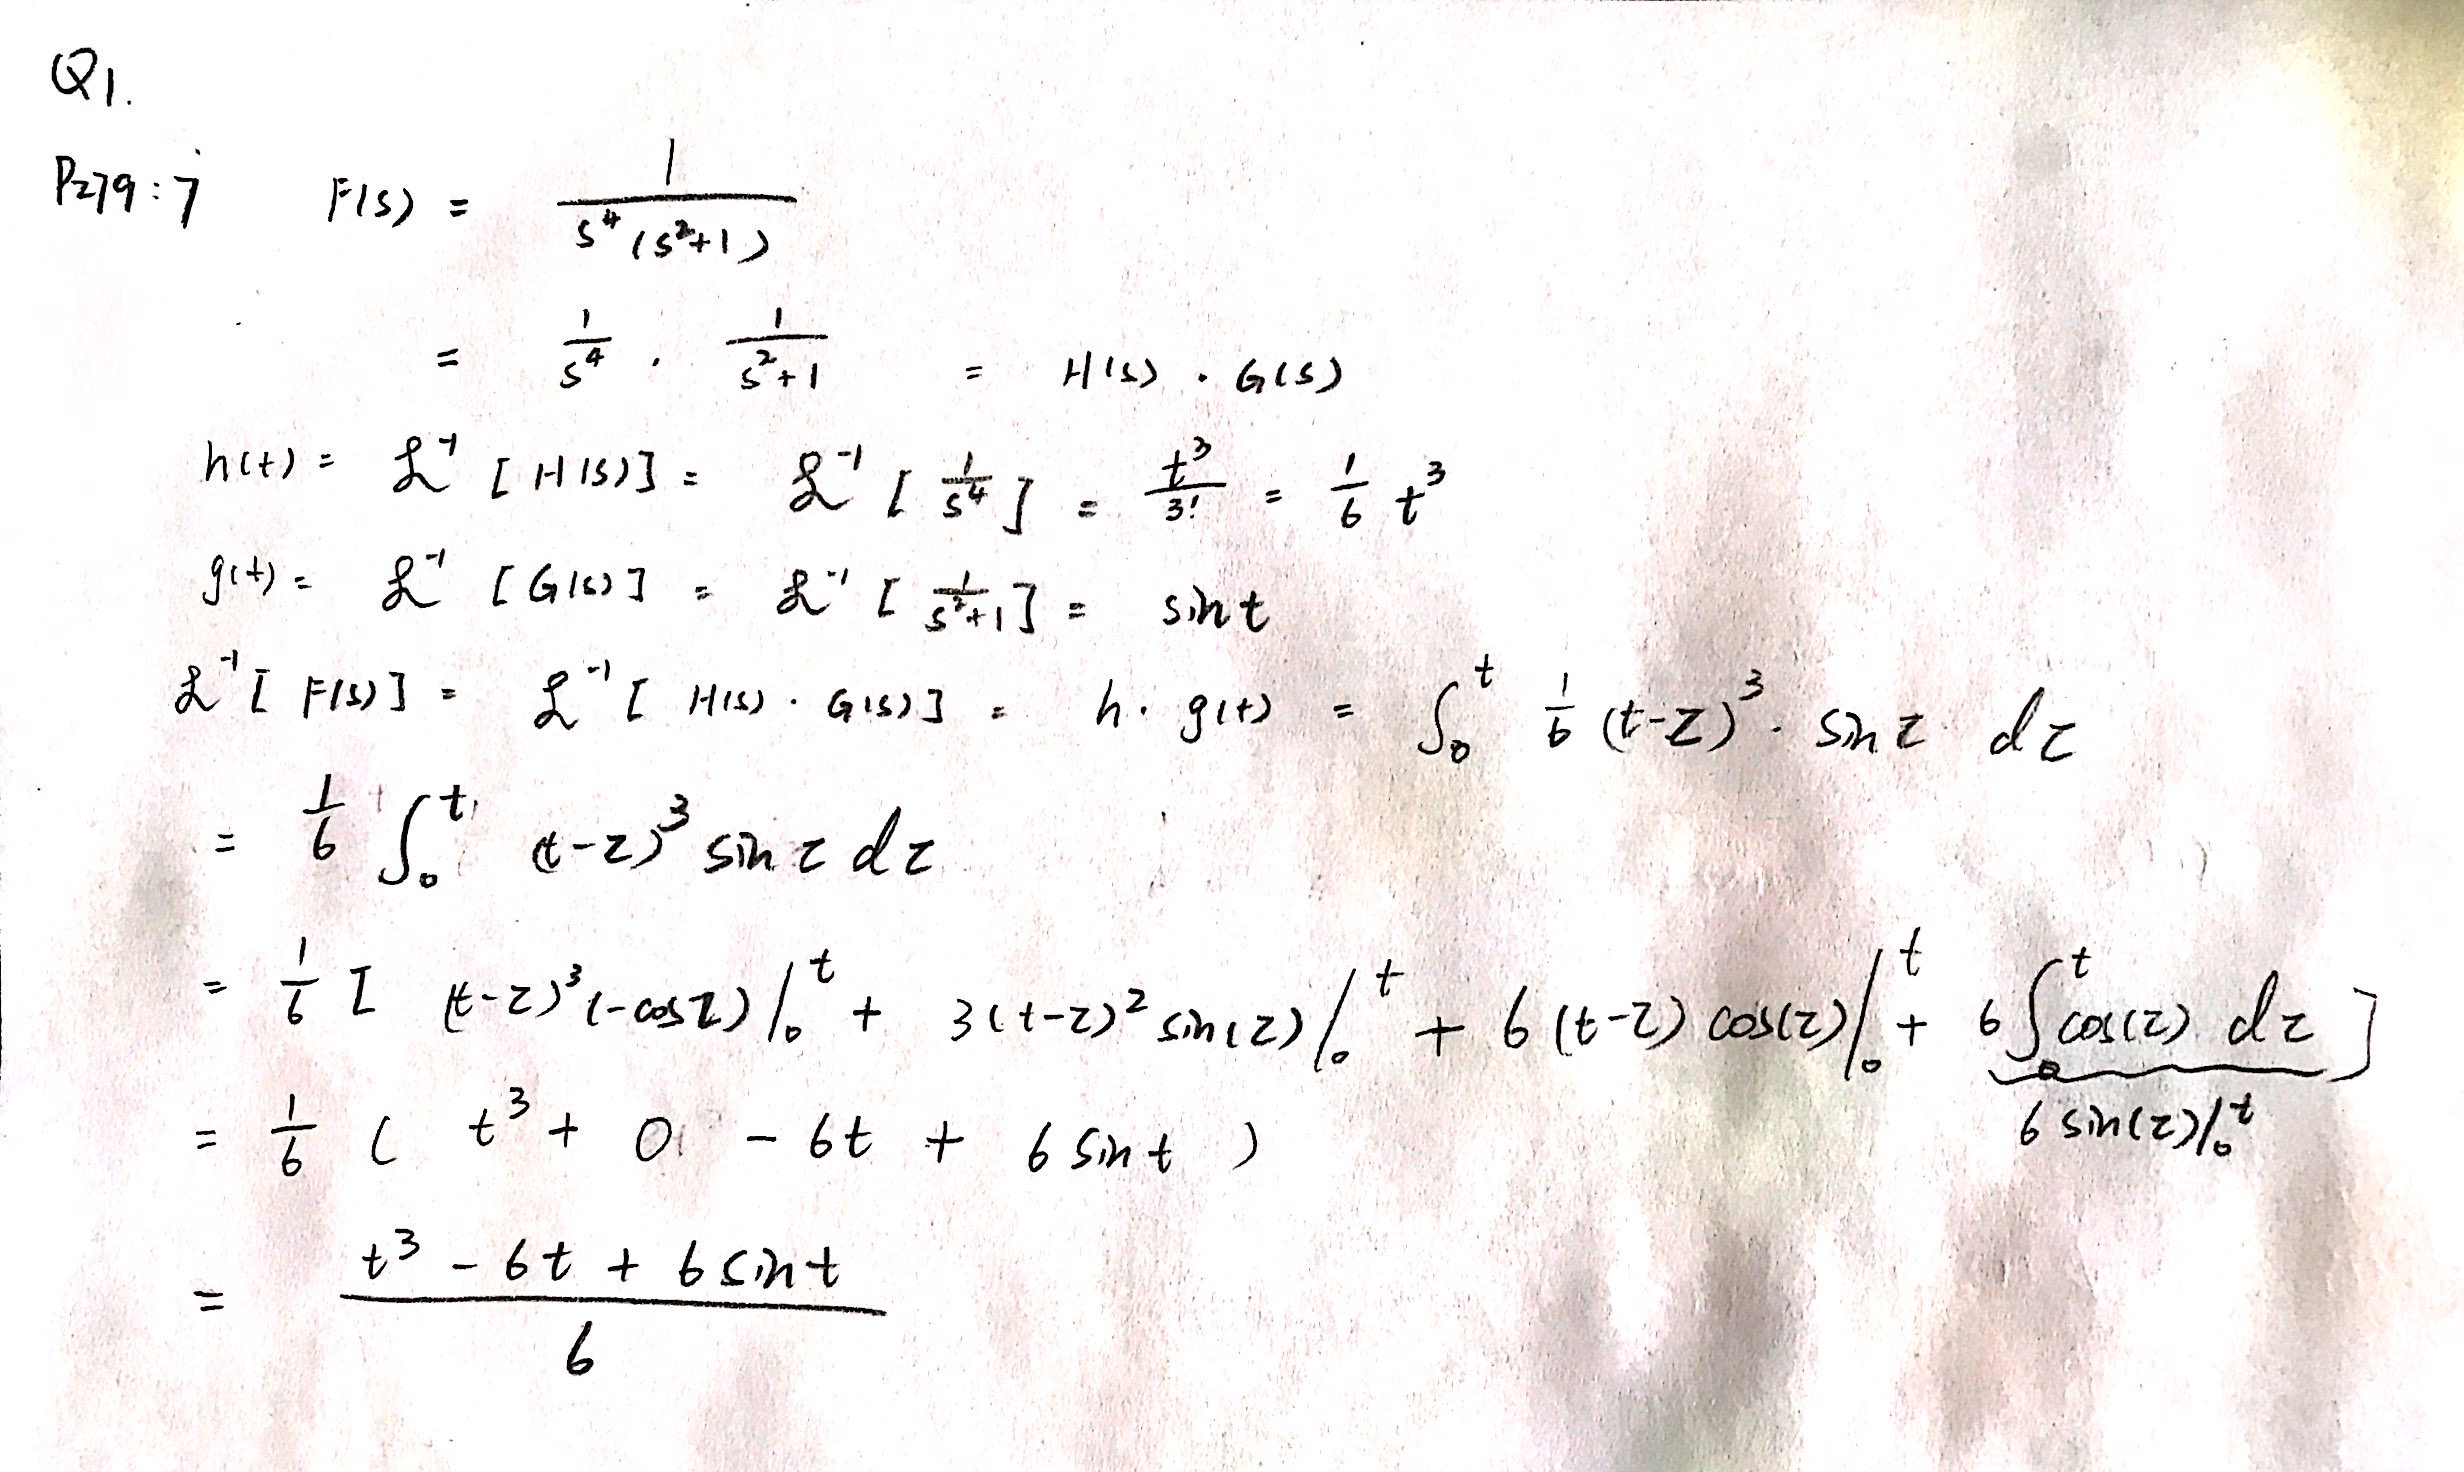 Q1.
P279:7 F(s) = 1/(s⁴(s²+1))
= 1/s⁴ · 1/(s²+1) = H(s) · G(s)
h(t) = ℒ⁻¹ [H(s)] = ℒ⁻¹ [1/s⁴] = t³/3! = 1/6 t³
g(t) = ℒ⁻¹ [G(s)] = ℒ⁻¹ [1/(s²+1)] = sin t
ℒ⁻¹[F(s)] = ℒ⁻¹[H(s) · G(s)] = h · g(t) = ∫₀ᵗ 1/6 (t-τ)³ · sin τ dτ
= 1/6 ∫₀ᵗ (t-τ)³ sin τ dτ
= 1/6 [ (t-τ)³(-cos τ)|₀ᵗ + 3(t-τ)² sin(τ)|₀ᵗ + 6(t-τ) cos(τ)|₀ᵗ + 6∫₀ᵗ cos(τ) dτ ]
6 sin(τ)|₀ᵗ
= 1/6 ( t³ + 0 - 6t + 6 sin t )
= (t³ - 6t + 6 sin t)/6